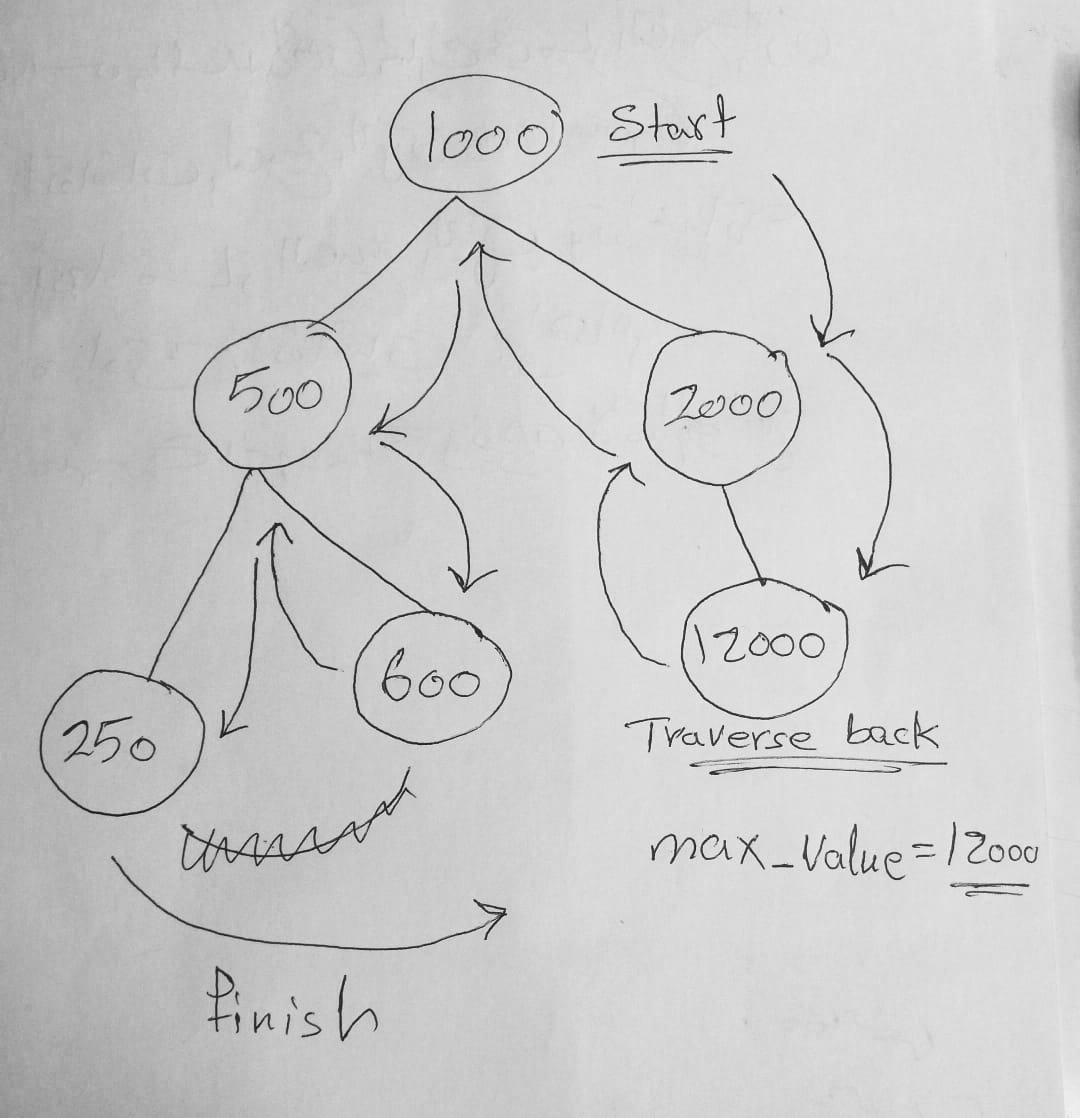 1000 Start
500
2000
600
12000
250
Traverse back
max_Value=12000
finish